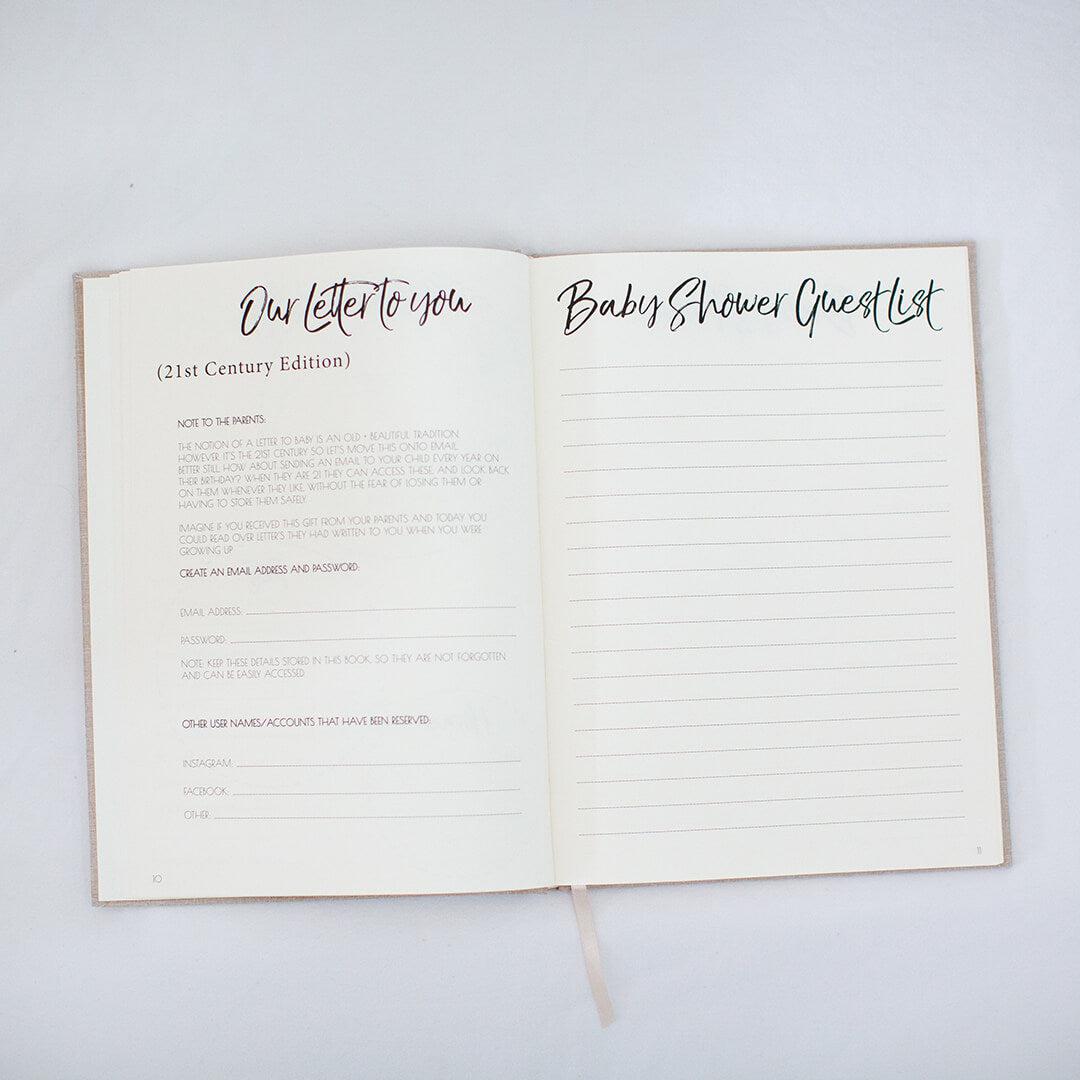 Our Letter to you
(21st Century Edition)
NOTE TO THE PARENTS:
THE NOTION OF A LETTER TO BABY IS AN OLD + BEAUTIFUL TRADITION.
HOWEVER, IT'S THE 21ST CENTURY SO LET'S MOVE THIS ONTO EMAIL.
BETTER STILL, HOW ABOUT SENDING AN EMAIL TO YOUR CHILD EVERY YEAR ON
THEIR BIRTHDAY? WHEN THEY ARE 21 THEY CAN ACCESS THESE, AND LOOK BACK
ON THEM WHENEVER THEY LIKE, WITHOUT THE FEAR OF LOSING THEM OR
HAVING TO STORE THEM SAFELY.
IMAGINE IF YOU RECEIVED THIS GIFT FROM YOUR PARENTS AND TODAY YOU
COULD READ OVER LETTER'S THEY HAD WRITTEN TO YOU WHEN YOU WERE
GROWING UP
CREATE AN EMAIL ADDRESS AND PASSWORD:
EMAIL ADDRESS:
PASSWORD:
NOTE: KEEP THESE DETAILS STORED IN THIS BOOK, SO THEY ARE NOT FORGOTTEN
AND CAN BE EASILY ACCESSED
OTHER USER NAMES/ACCOUNTS THAT HAVE BEEN RESERVED:
INSTAGRAM:
FACEBOOK:
OTHER:
10
Baby Shower Guest List
11